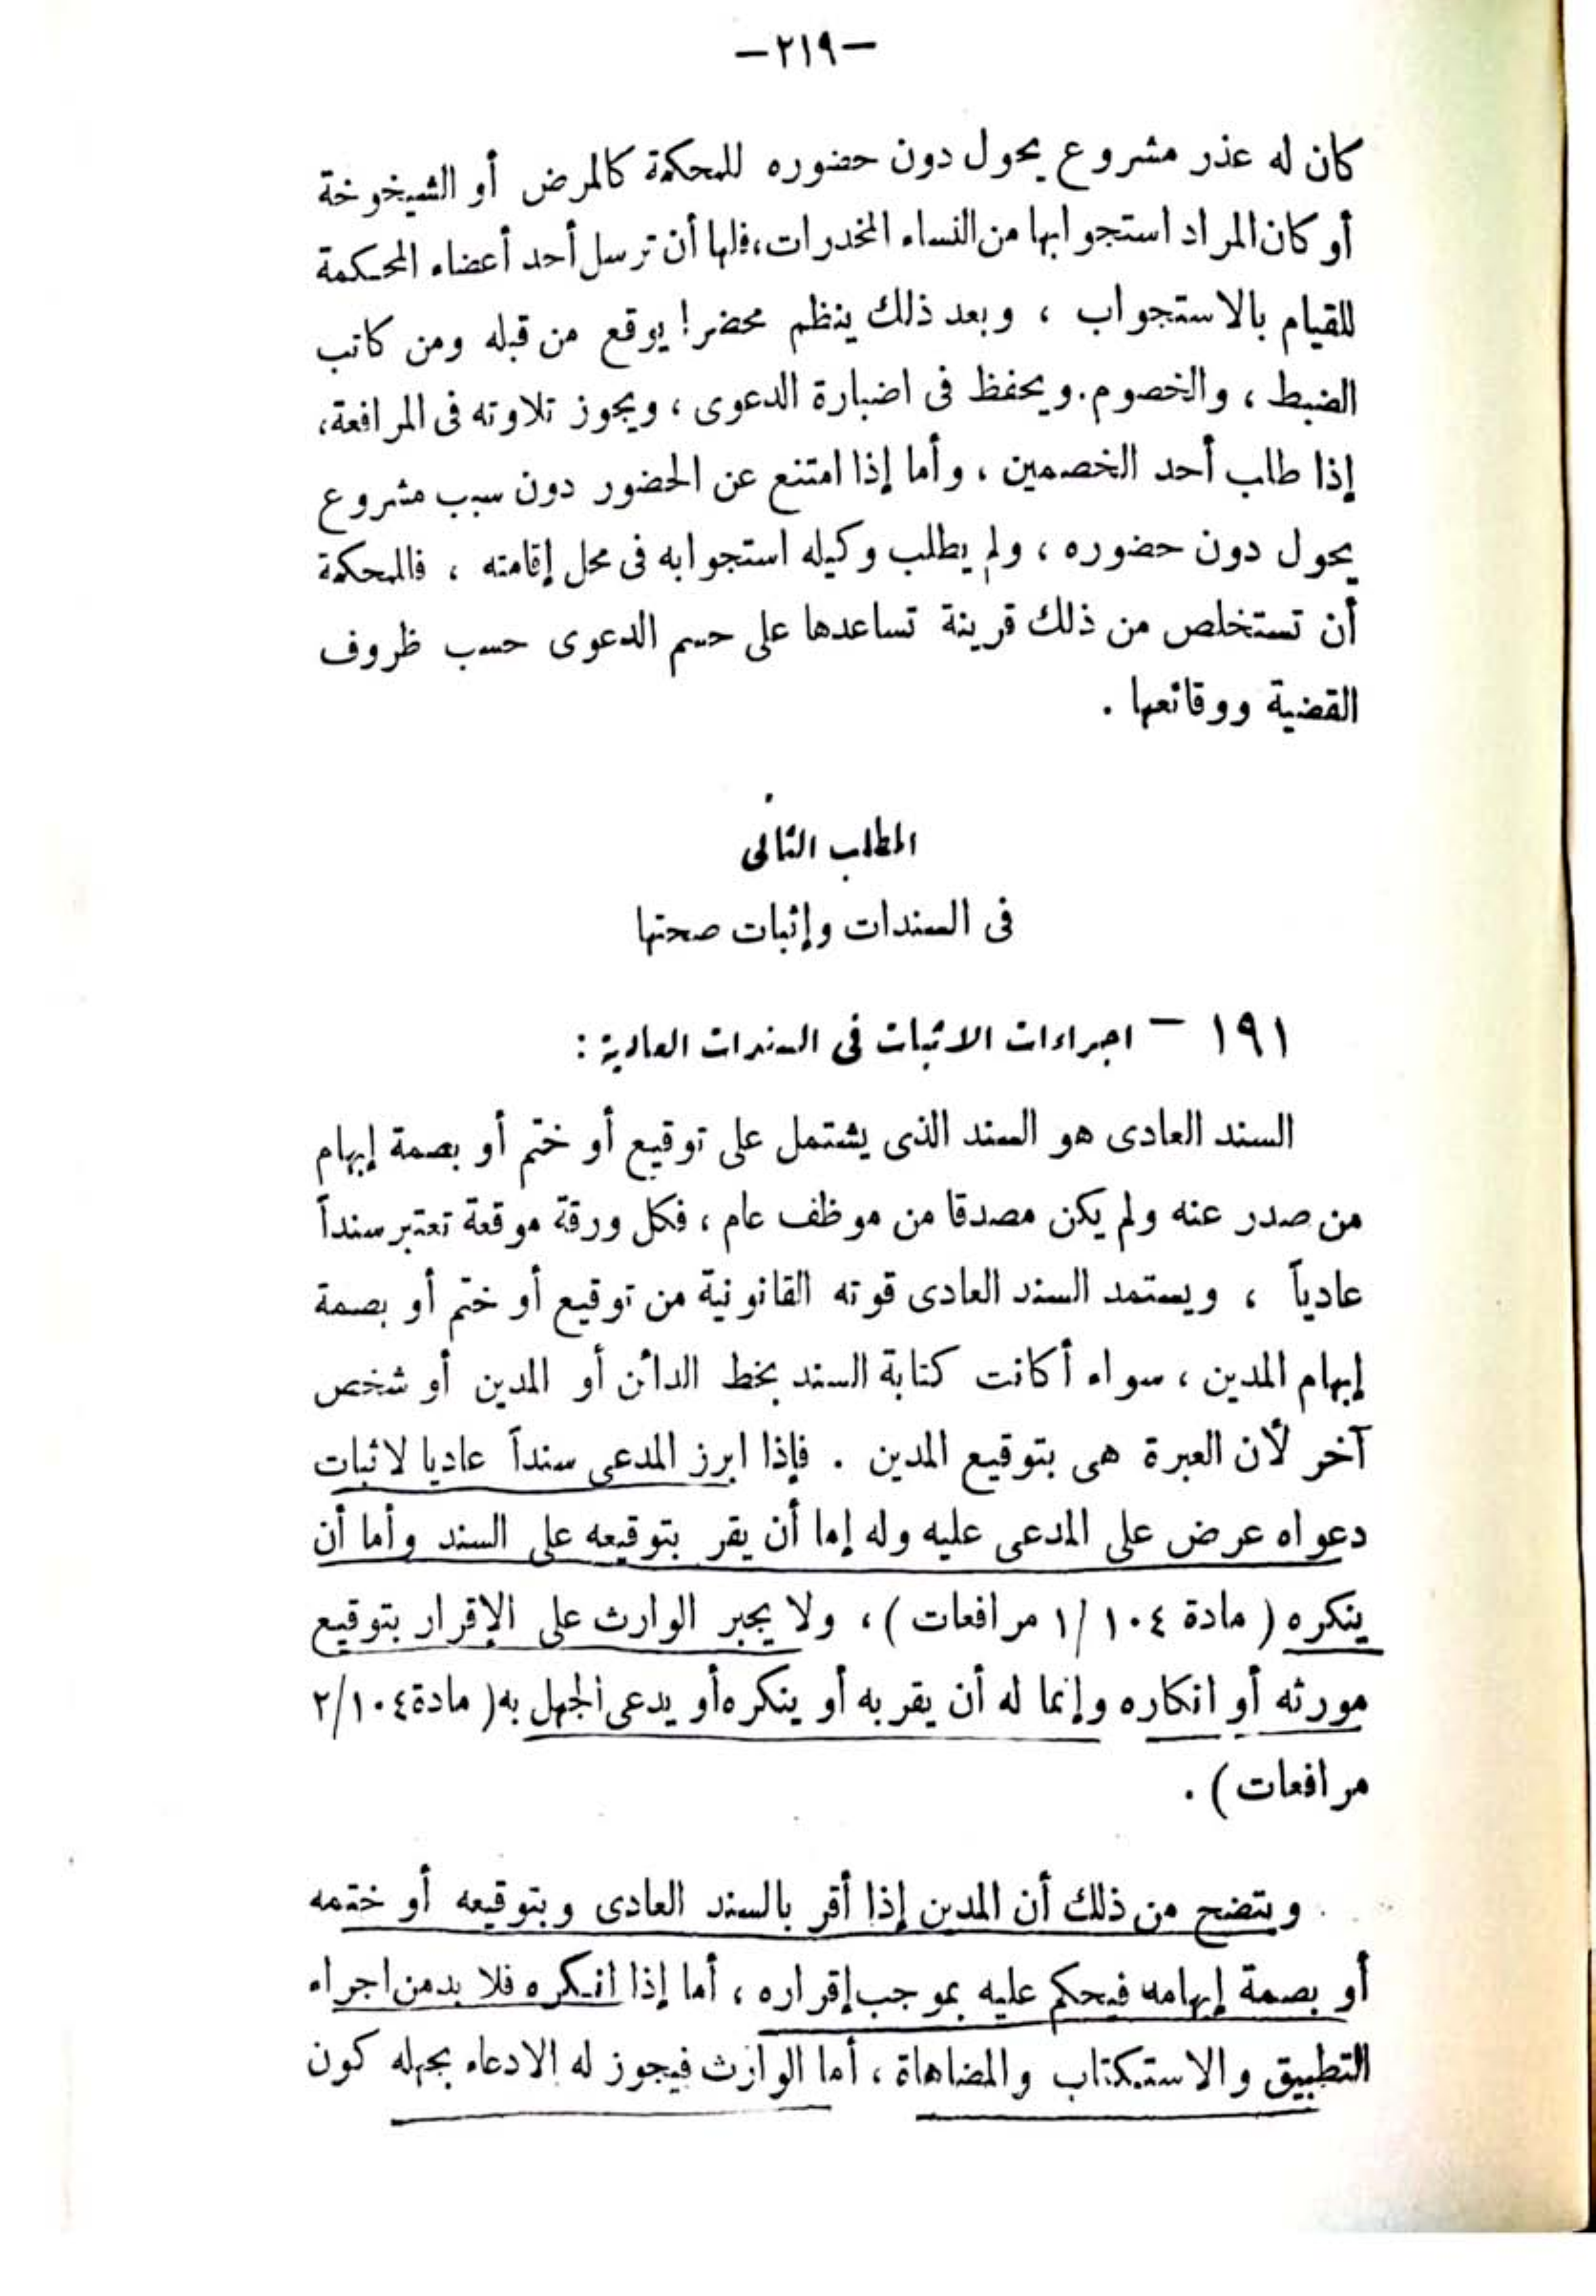 —٢١٩—
كان له عذر مشروع يحول دون حضوره للمحكمة كالمرض أو الشيخوخة
أو كان المراد استجوابها من النساء المخدرات، فلها أن ترسل أحد أعضاء المحكمة
للقيام بالاستجواب ، وبعد ذلك ينظم محضرا يوقع من قبله ومن كاتب
الضبط ، والخصوم. ويحفظ فى اضبارة الدعوى ، ويجوز تلاوته فى المرافعة،
إذا طلب أحد الخصمين ، وأما إذا امتنع عن الحضور دون سبب مشروع
يحول دون حضوره ، ولم يطلب وكيله استجوابه فى محل إقامته ، فالمحكمة
أن تستخلص من ذلك قرينة تساعدها على حسم الدعوى حسب ظروف
القضية ووقائعها .
المطلب الثانى
فى السندات وإثبات صحتها
١٩١ — اجراءات الاثبات فى السندات العادية :
السند العادى هو السند الذى يشتمل على توقيع أو ختم أو بصمة إبهام
من صدر عنه ولم يكن مصدقا من موظف عام ، فكل ورقة موقعة تعتبر سنداً
عادياً ، ويستمد السند العادى قوته القانونية من توقيع أو ختم أو بصمة
إبهام المدين ، سواء أكانت كتابة السند بخط الدائن أو المدين أو شخص
آخر لأن العبرة هى بتوقيع المدين . فإذا ابرز المدعى سنداً عاديا لاثبات
دعواه عرض على المدعى عليه وله إما أن يقر بتوقيعه على السند وأما أن
ينكره ( مادة ١٠٤ /١ مرافعات ) ، ولا يجبر الوارث على الإقرار بتوقيع
مورثه أو انكاره وإنما له أن يقر به أو ينكره أو يدعى الجهل به ( مادة ٢/١٠٤
مرافعات ) .
ويتضح من ذلك أن المدين إذا أقر بالسند العادى وبتوقيعه أو ختمه
أو بصمة إبهامه فيحكم عليه بموجب إقراره ، أما إذا انكره فلا بد من اجراء
التطبيق والاستكتاب والمضاهاة ، أما الوارث فيجوز له الادعاء بجهله كون